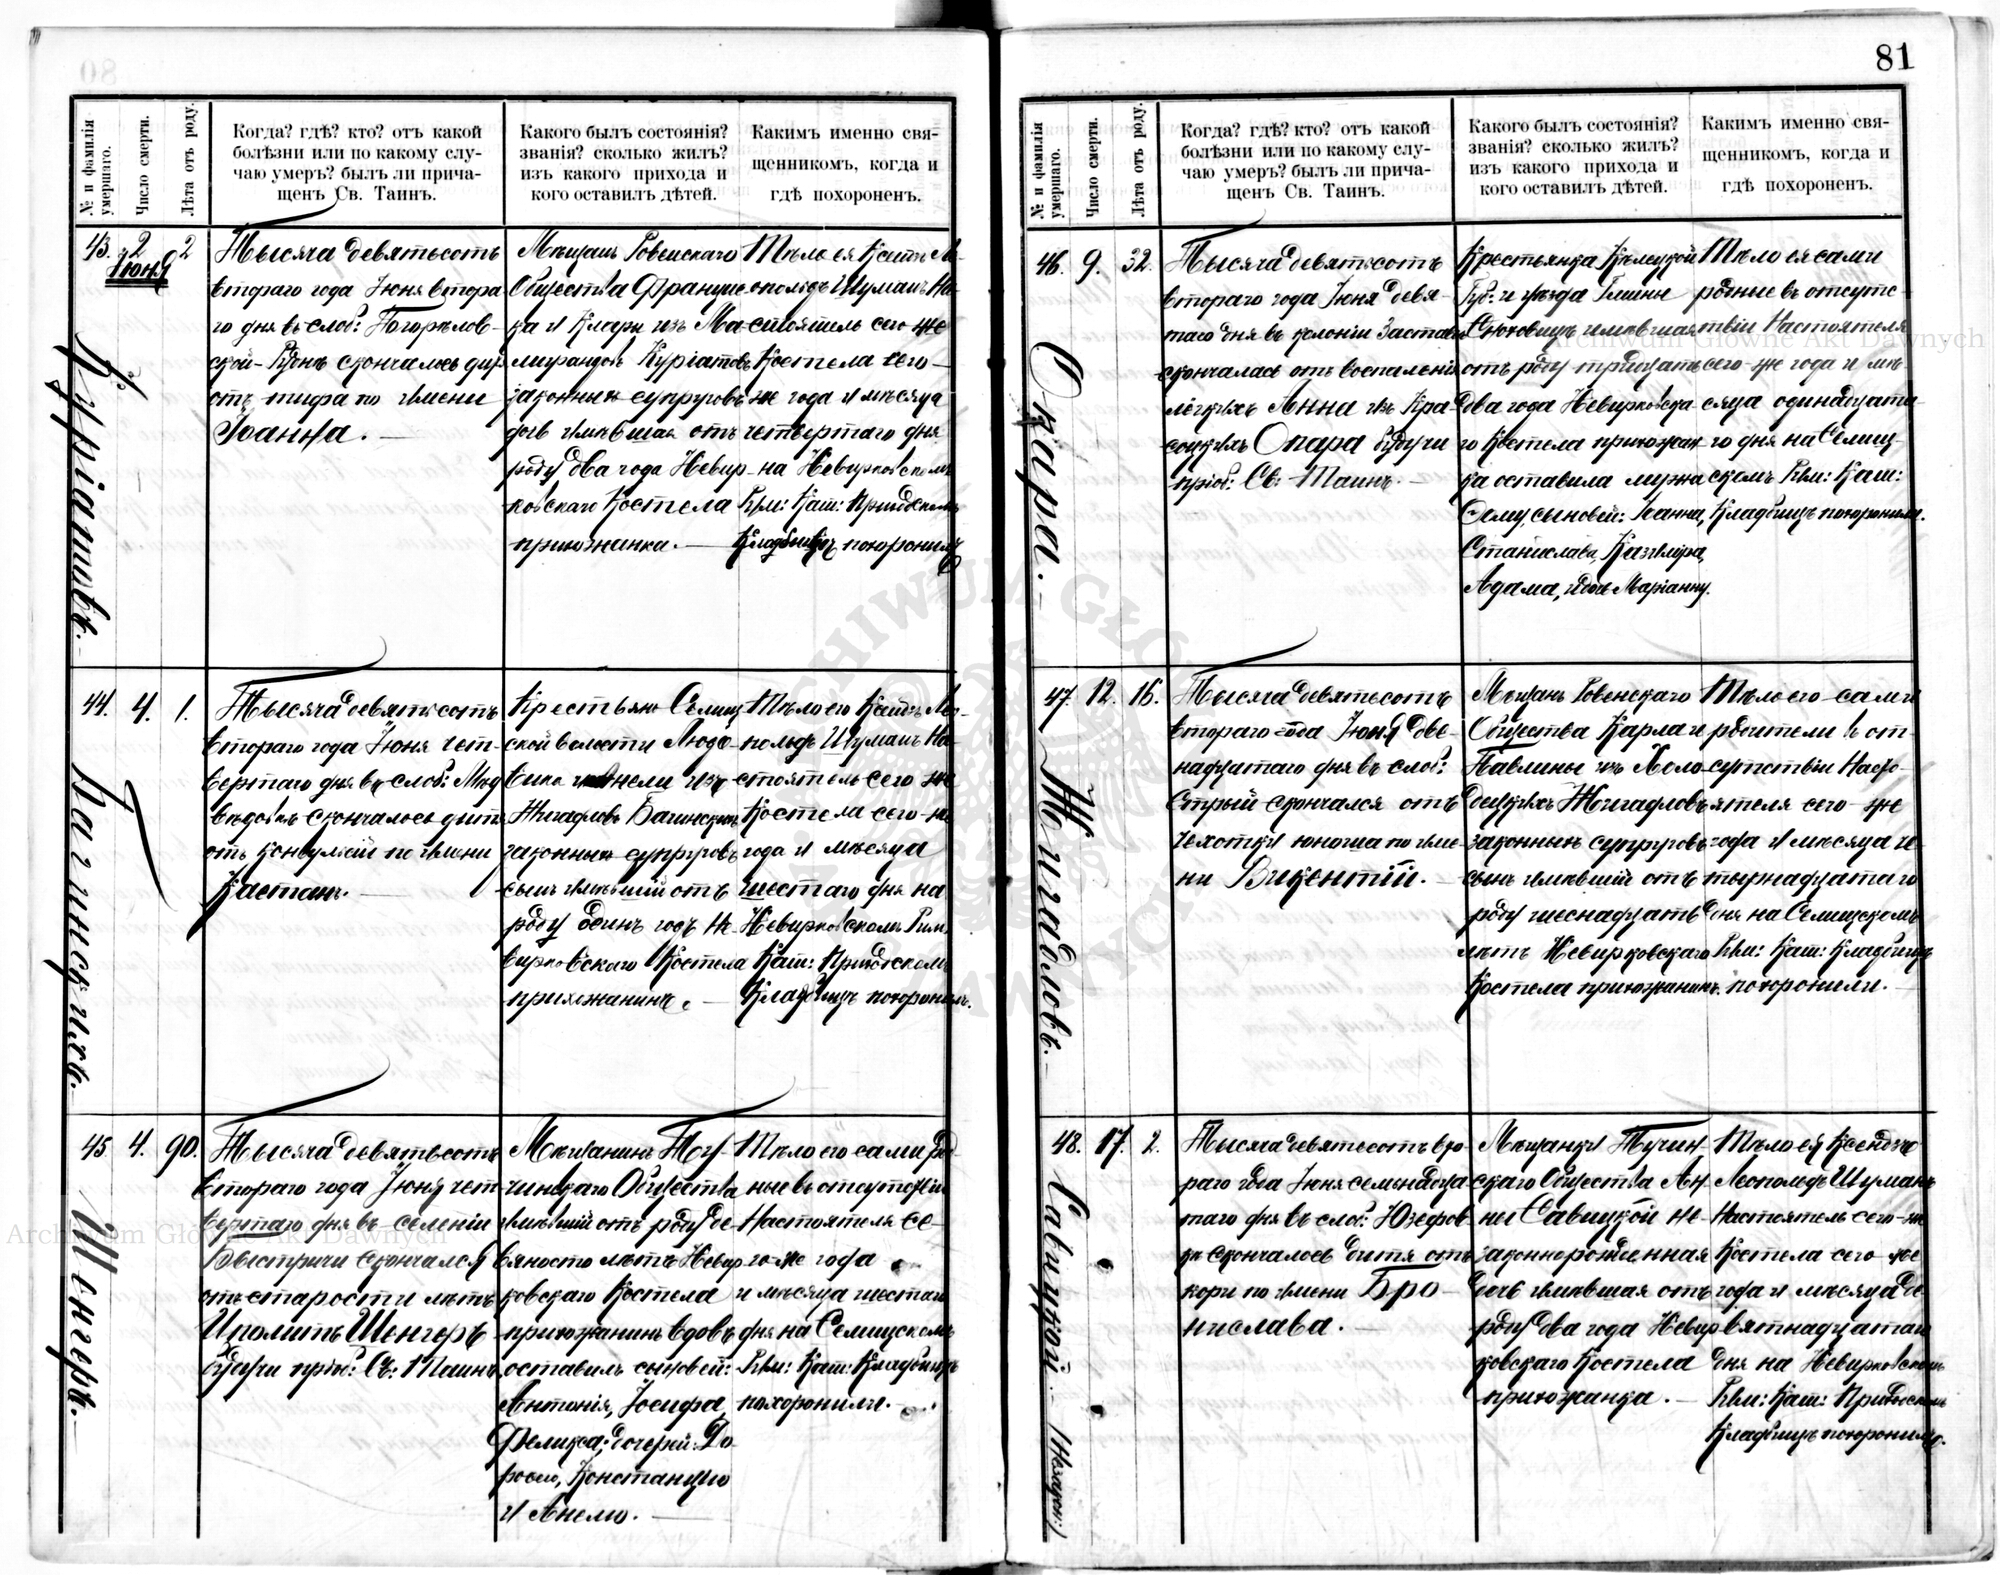 81
№ и фамилія умершаго.
Число смерти.
Лѣта отъ роду.
Когда? гдѣ? кто? отъ какой
болѣзни или по какому слу-
чаю умеръ? былъ ли прича-
щенъ Св. Таинъ.
Какого былъ состоянія?
званія? сколько жилъ?
изъ какого прихода и
кого оставилъ дѣтей.
Какимъ именно свя-
щенникомъ, когда и
гдѣ похороненъ.
43. 2 Юня 2
Куріатовъ.
Тысяча девятьсотъ
втораго года Іюня втора
го дня въ слоб: Погорѣлов-
ской скончалось дит.
отъ тифа по имени
Іоанна.
Мѣщанъ Ровенскаго
Общества Францис-
ка и Клары изъ Ма-
лирандовъ Куріатовъ
законныхъ супруговъ
дочь имѣвшая отъ
роду два года Невир-
ковскаго Костела
прихожанка.
Тѣло ея Ксендзъ Ле-
опольдъ Шуманъ На-
стоятель сего-же
Костела сего-
же года и мѣсяца
четвертаго дня
на Невирковскомъ
Рим: Кат: Приходскомъ
Кладбищѣ похоронилъ
44. 4. 1.
Багинскихъ.
Тысяча девятьсотъ
втораго года Іюня чет-
вертаго дня въ слоб: Мед
вѣдовкѣ скончалось дитя
отъ конвульсій по имени
Каетанъ.
Крестьянъ Селищ
ской волости Людо-
вика и Анели изъ
Жигадловъ Багинскихъ
законныхъ супруговъ
сынъ имѣвшій отъ
роду одинъ годъ Не-
вирковскаго Костела
прихожанинъ.
Тѣло его Ксендзъ Лео-
польдъ Шуманъ На-
стоятель сего-же
Костела сего-же
года и мѣсяца
шестаго дня на
Невирковскомъ Рим:
Кат: Приходскомъ
Кладбищѣ похоронилъ.
45. 4. 90.
Шенгеръ.
Тысяча девятьсотъ
втораго года Іюня чет
вертаго дня въ селеніи
Быстричи скончался
отъ старости лѣтъ
Иполитъ Шенгеръ
будучи пріоб: Св: Таинъ
Мѣщанинъ Ту-
чинскаго Общества
имѣвшій отъ роду де-
вяносто лѣтъ Невир
ковскаго Костела
прихожанинъ вдовъ
оставилъ сыновей:
Антонія, Іосифа,
Феликса; дочерей: До-
роту, Констанцію
и Анелю.
Тѣло его сами род
ные въ отсутствіи
Настоятеля се-
го-же года
и мѣсяца шестаго
дня на Селищскомъ
Рим: Кат: Кладбищѣ
похоронили.
№ и фамилія умершаго.
Число смерти.
Лѣта отъ роду.
Когда? гдѣ? кто? отъ какой
болѣзни или по какому слу-
чаю умеръ? былъ ли прича-
щенъ Св. Таинъ.
Какого былъ состоянія?
званія? сколько жилъ?
изъ какого прихода и
кого оставилъ дѣтей.
Какимъ именно свя-
щенникомъ, когда и
гдѣ похороненъ.
46. 9. 32.
Опара.
Тысяча девятьсотъ
втораго года Іюня девя-
таго дня въ колоніи Застав
скончалась отъ воспаленія
легкихъ Анна изъ Кра
соцкихъ Опара будучи
пріоб: Св: Таинъ.
Крестьянка Кѣлецкой
Губ: и уѣзда Гмины
имѣвшая
отъ роду тридцать
два года Невирковска
го Костела прихожан
ка оставила мужа
Сему сыновей: Іоанна,
Станислава, Казиміра,
Адама, дочь Маріанну.
Тѣло ея сами
родные въ отсутс-
твіи Настоятеля
сего-же года и мѣ-
сяца одинадцата-
го дня на Селищ-
скомъ Рим: Кат:
Кладбищѣ похоронили.
47. 12. 16.
Жигадловъ.
Тысяча девятьсотъ
втораго года Іюня две-
надцатаго дня въ слоб:
Стрый скончался отъ
чехотки юноша по име-
ни Викентій.
Мѣщанъ Ровенскаго
Общества Карла и
Павлины изъ Коло-
децкихъ Жигадловъ
законныхъ супруговъ
сынъ имѣвшій отъ
роду шеснадцать
лѣтъ Невирковскаго
Костела прихожанинъ.
Тѣло его сами
родители въ от-
сутствіи Насто-
ятеля сего-же
года и мѣсяца че-
тырнадцатаго
дня на Селищскомъ
Рим: Кат: Кладбищѣ
похоронили.
48. 17. 2.
Савицкой. (Незакон:)
Тысяча девятьсотъ вто-
раго года Іюня семьнадца
таго дня въ слоб: Юзефов
кѣ скончалось дитя отъ
кори по имени Бро-
нислава.
Мѣщанки Тучин-
скаго Общества Ан-
ны Савицкой не-
законнорожденная
дочь имѣвшая отъ
роду два года Невир
ковскаго Костела
прихожанка.
Тѣло ея Ксендзъ
Леопольдъ Шуманъ
Настоятель сего-же
Костела сего-же
года и мѣсяца де-
вятнадцатаго
дня на Невирковскомъ
Рим: Кат: Приходскомъ
Кладбищѣ похоронилъ.
Archiwum Główne Akt Dawnych
Archiwum Główne Akt Dawnych